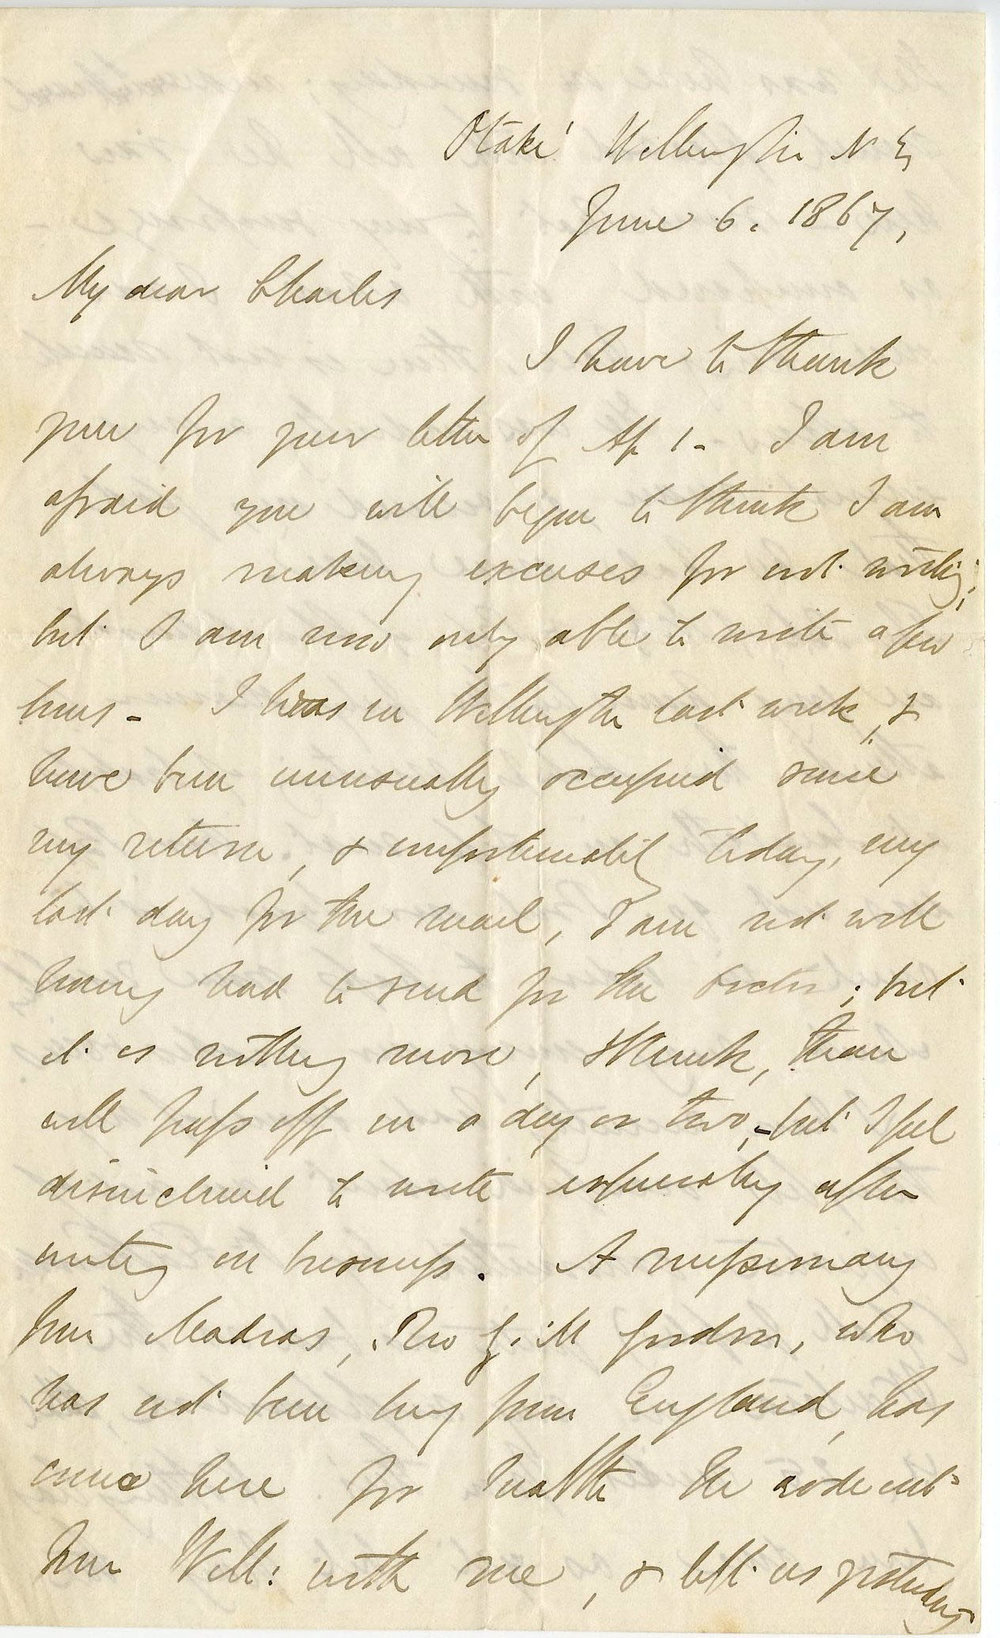 Otaki Wellington N Z
June 6. 1867,
My dear Charles
I have to thank
you for your letter of Ap 1 - I am
afraid you will begin to think I am
always making excuses for not writing;
but I am now only able to write a few
lines - I was in Wellington last week, &
have been unusually occupied since
my return, & unfortunately today, my
last day for the mail, I am not well
having had to send for the Doctor; but
it is nothing more, I think, than
will pass off in a day or two, - but I feel
disinclined to write especially after
writing on business. A missionary
from Madras, Rev J. M Gordon, who
has not been long from England, has
come here for health He rode out
from Well: with me, & left us yesterday